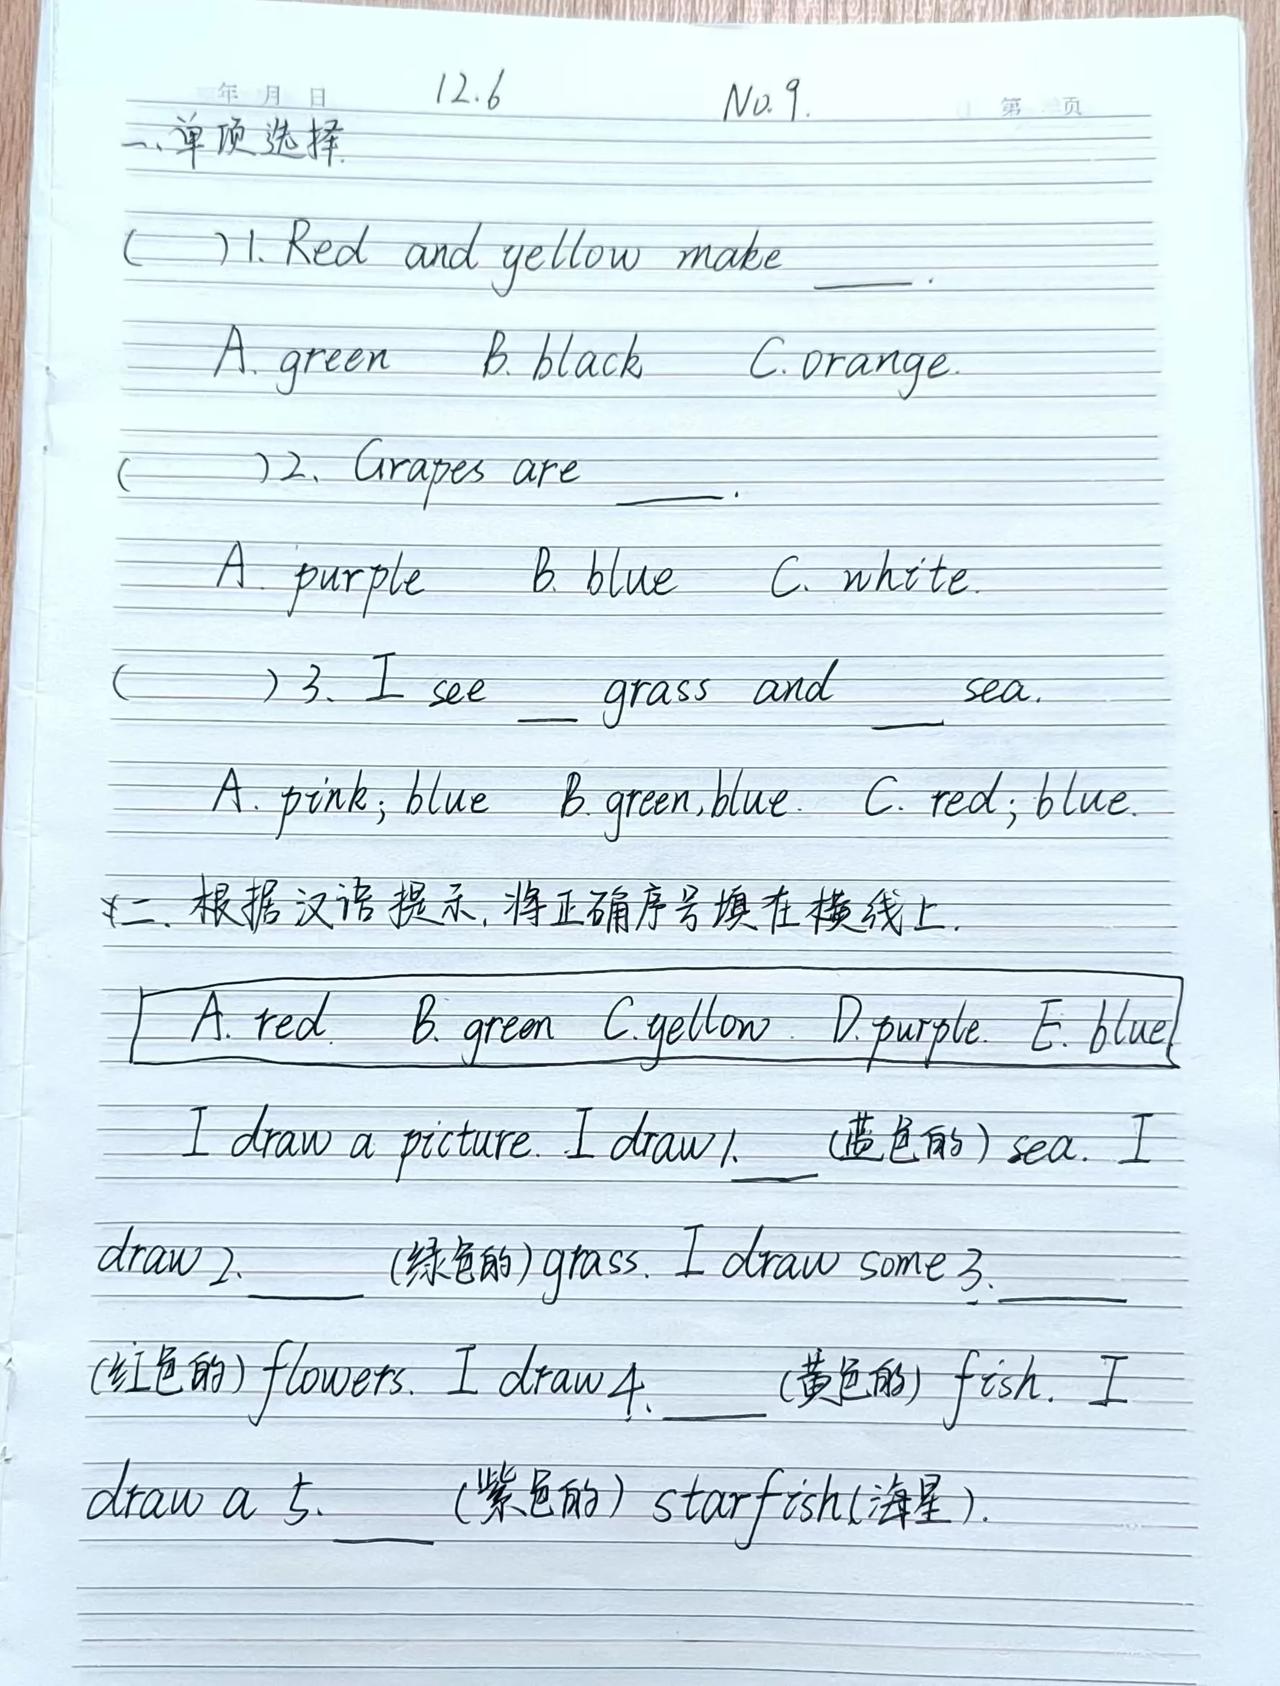 年 月 日 12.6 No.9. 第 页
一、单项选择.
( )1. Red and yellow make ____.
A. green B. black C. orange.
( )2. Grapes are ____.
A. purple B. blue C. white.
( )3. I see __ grass and __ sea.
A. pink; blue B. green, blue. C. red; blue.
二. 根据汉语提示, 将正确序号填在横线上.
A. red. B. green C. yellow. D. purple. E. blue
I draw a picture. I draw 1. __ (蓝色的) sea. I
draw 2. ____ (绿色的) grass. I draw some 3. ____
(红色的) flowers. I draw 4. ____ (黄色的) fish. I
draw a 5. ____ (紫色的) starfish(海星).